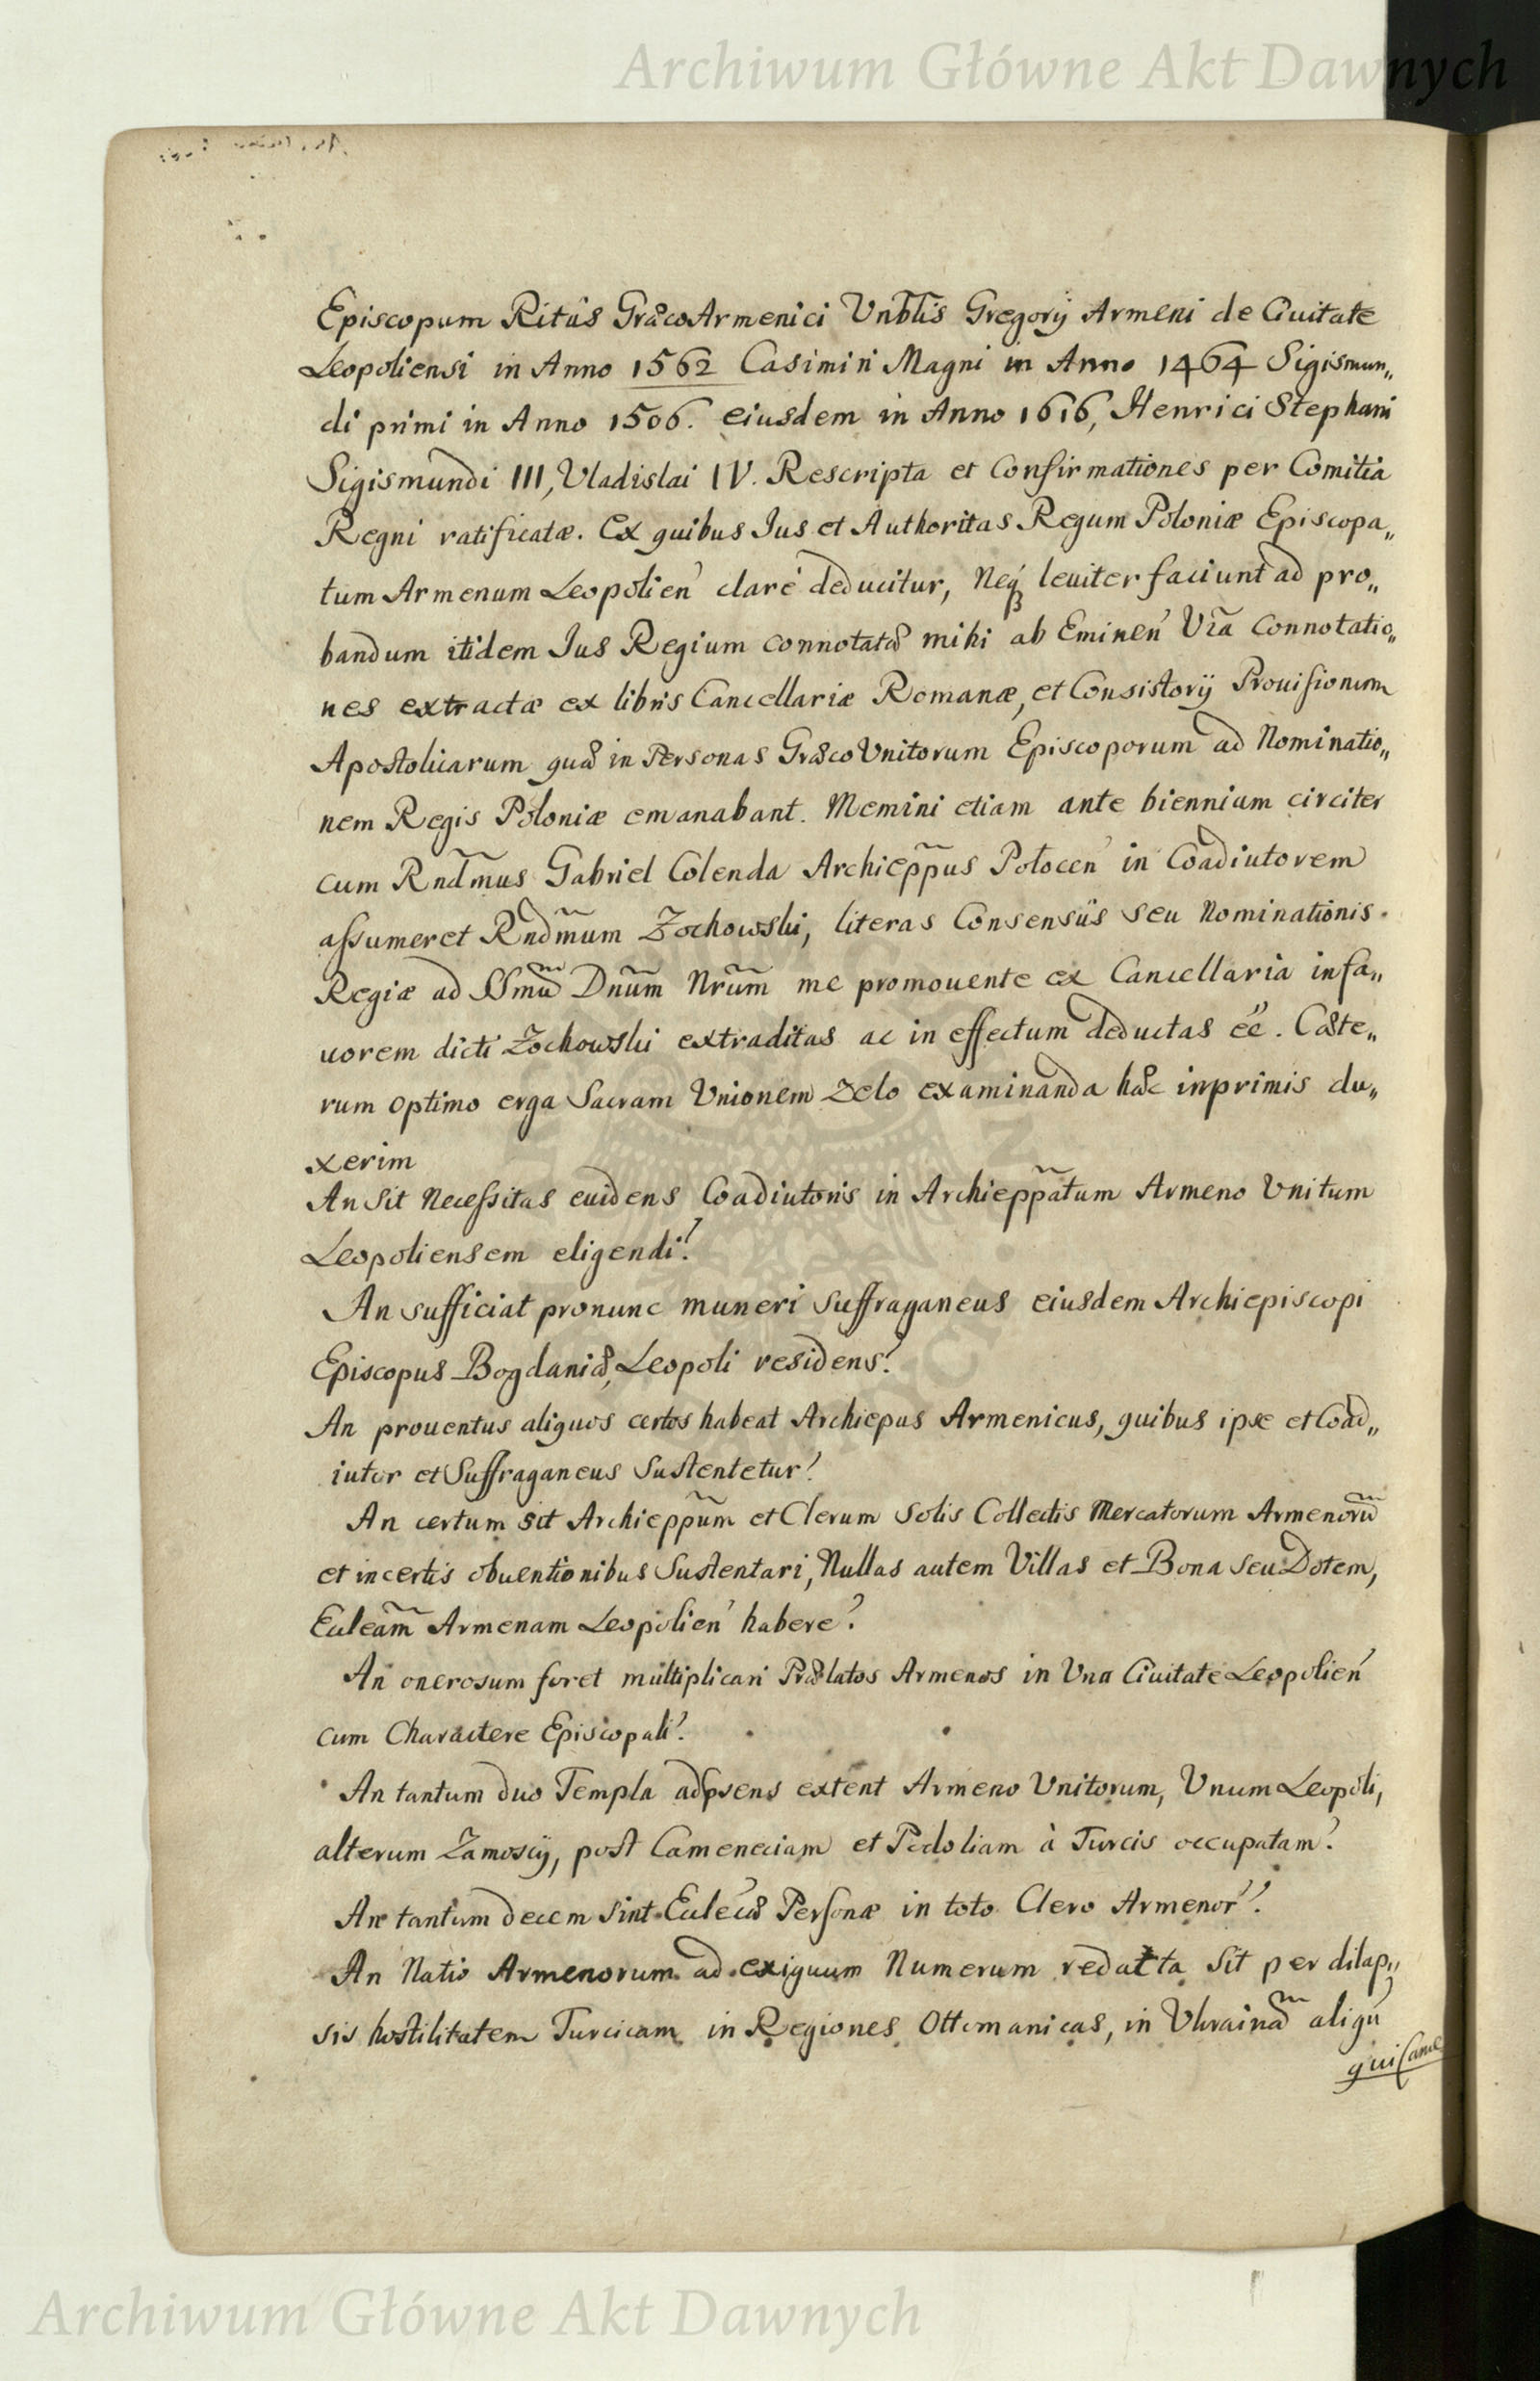 Archiwum Główne Akt Dawnych
Episcopum Ritûs GræcoArmenici Vnbĩlis Gregorij Armeni de Ciuitate
Leopoliensi in Anno 1562 Casimiri Magni in Anno 1464 Sigismun„
di primi in Anno 1506. eiusdem in Anno 1616, Henrici Stephani
Sigismundi III, Vladislai IV. Rescripta et Confirmationes per Comitia
Regni ratificatæ. Ex quibus Ius et Authoritas Regum Poloniæ Episcopa„
tum Armenum Leopolien̉ clarè deducitur, Neq́ꝫ leuiter faciunt ad pro„
bandum itidem Ius Regium connotatæ mihi ab Eminen̉ Vr̃a Connotatio„
nes extractæ ex libris Cancellariæ Romanæ, et Consistorij Prouisionum
Apostolicarum quæ in Personas GræcoVnitorum Episcoporum ad Nominatio„
nem Regis Poloniæ emanabant. Memini etiam ante biennium circiter
cum Rnd̃mus Gabriel Colenda Archiepp̃us Połocen̉ in Coadiutorem
assumeret Rnd̃mum Zochowski, literas Consensûs seu Nominationis
Regiæ ad SSmũ Dnũm Nrũm me promouente ex Cancellaria in fa„
uorem dicti Zochowski extraditas ac in effectum deductas ẽẽ. Cæte„
rum optimo erga Sacram Vnionem zelo examinanda hæc inprimis du„
xerim
An sit Necessitas euidens Coadiutoris in Archiepp̃atum Armeno Vnitum
Leopoliensem eligendi?
An sufficiat pronunc muneri Suffraganeus eiusdem Archiepiscopi
Episcopus Bogdaniæ, Leopoli residens?
An prouentus aliquos certos habeat Archiepus Armenicus, quibus ipse et Coad„
iutor et Suffraganeus Sustentetur?
An certum sit Archiepp̃um et Clerum Solis Collectis Mercatorum Armenorũ
et incertis obuentionibus Sustentari, Nullas autem Villas et Bona seu Dotem,
Eccleãm Armenam Leopolien̉ habere?
An onerosum foret multiplicari Prælatos Armenos in Vna Ciuitate Leopolien̉
cum Charactere Episcopali?
An tantum duo Templa adpsens extent Armeno Vnitorum, Vnum Leopoli,
alterum Zamoscij, post Cameneciam et Podoliam à Turcis occupatam?
An tantum decem sint Eccleĉæ Personæ in toto Clero Armenor̉?
An Natio Armenorum ad exiguum Numerum redacta sit per dilap„
sis hostilitatem Turcicam in Regiones Ottomanicas, in Vkrainã aliqu̓
qui Came
Archiwum Główne Akt Dawnych